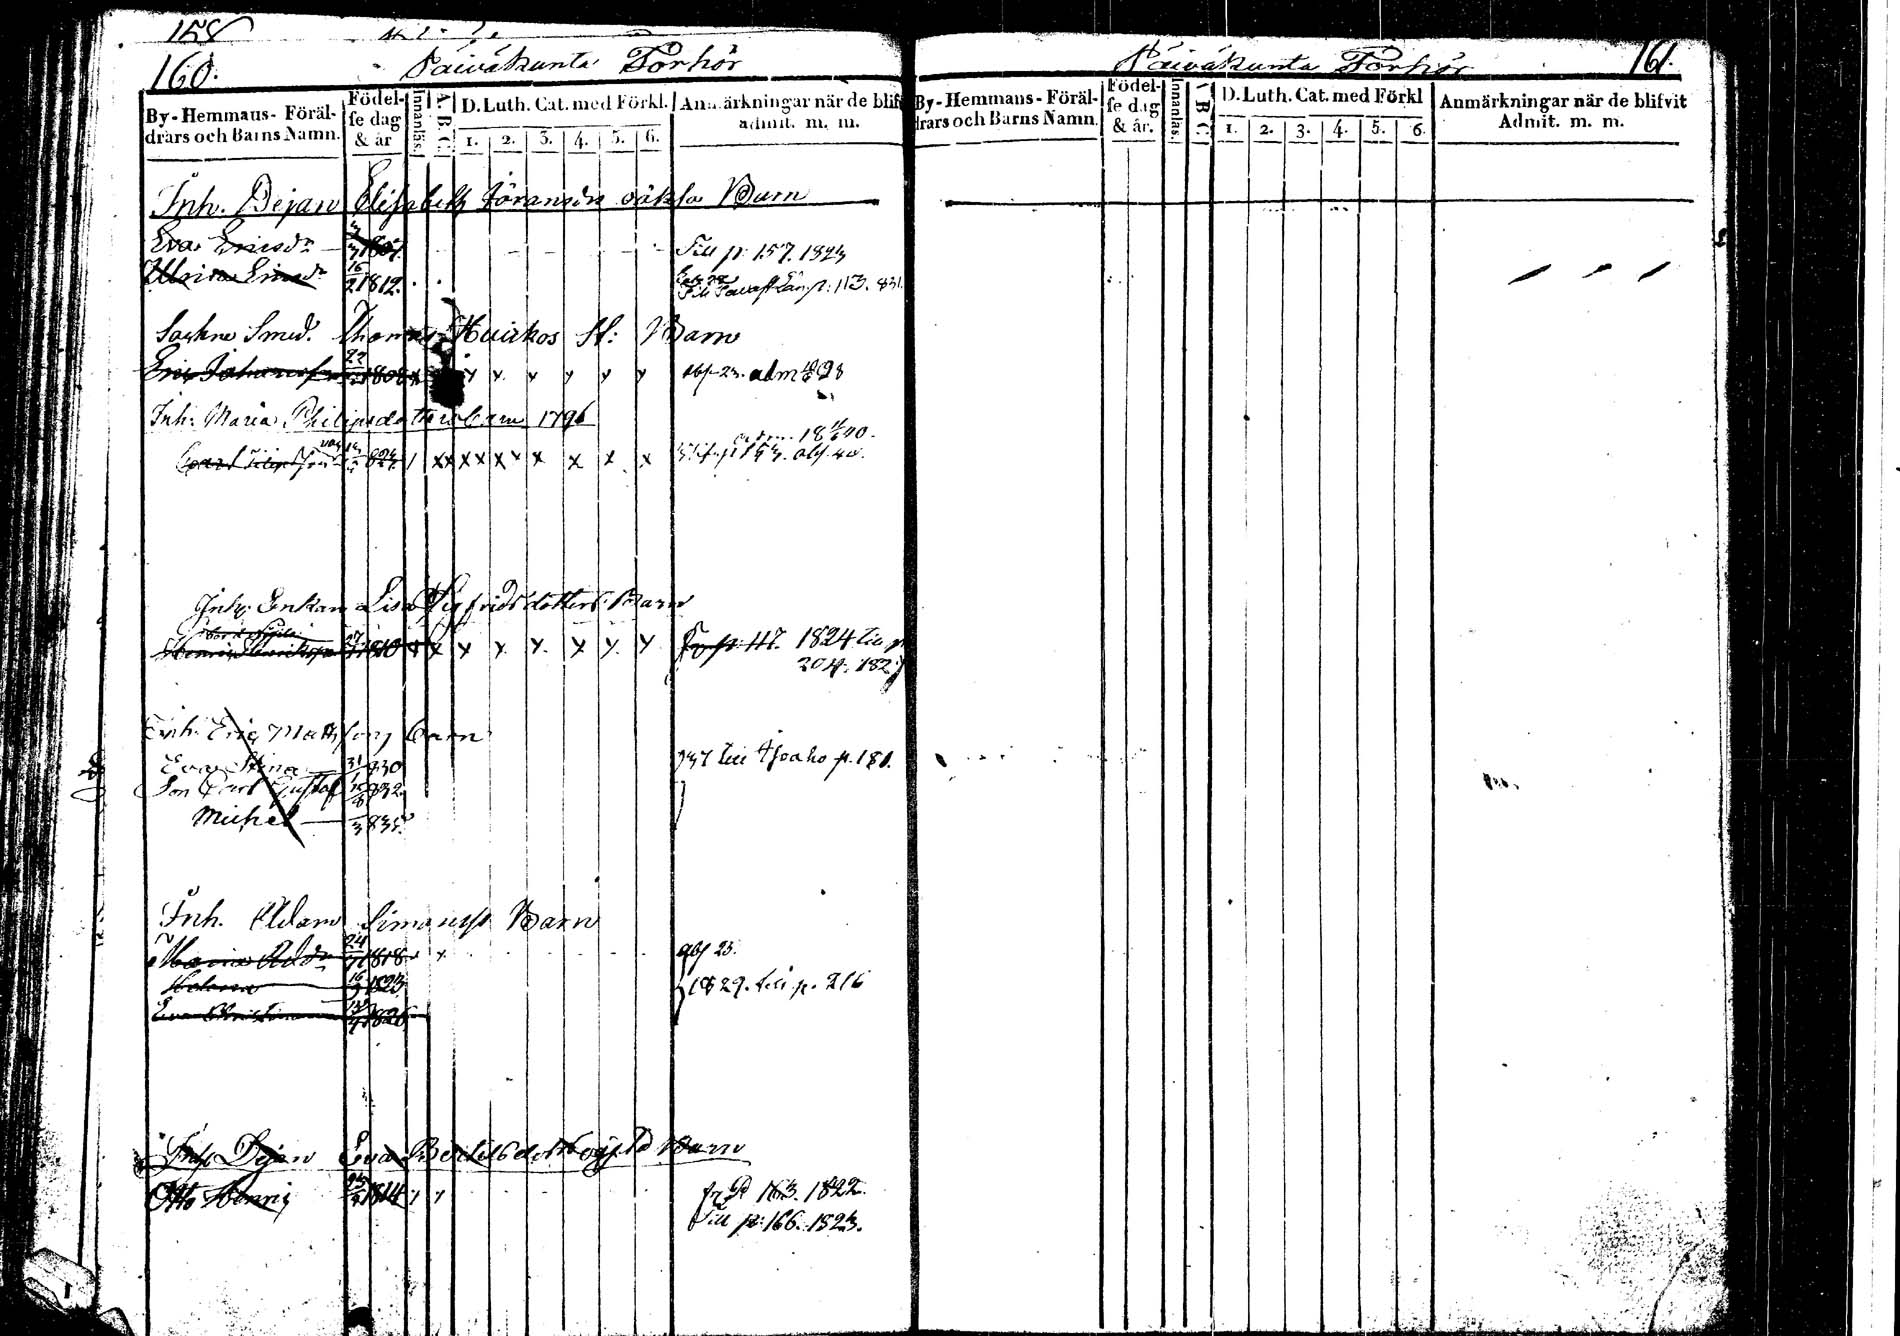 158
160. Päiväkunta Förhör
By-Hemmans-Föräl-drars och Barns Namn. Födel-se dag & år Innanläs. A B C D. Luth. Cat. med Förkl. 1. 2. 3. 4. 5. 6. Anmärkningar när de blif admit. m. m.
Inh. Pejan Elisabeth Göransdrs oäkta Barn
Eva Ericsdr 1807. Till p: 157. 1823
Ulrica Ericsdr 16/2 1812. p: 113. 831.
Sockne Smed. Thomas Huickos St: Barn
Eric Johansson 22 1808 x x x x x x abs. 23. adm 1828
Inh: Maria Philipsdotters barn 1796
adm. 18 40.
Carl 824 / xx xx xx x x x x p 153. abs. 40.
Inhy: Enkan Lisa Sigfridsdotters Barn
Henric Henriksson 27 1810 x x x x x x x x Fr p: 47. 1824 till p
204. 182
Inh. Eric Mattssons barn
Eva Stina 31 830 837 till Ahoaho p. 181.
Son Carl Gustaf 1/8 832.
Michel — /3 835.
Inh. Adam Simonss. Barn
Maria Adr 24 1818 abs 23.
Helena 16/3 1823 1829. till p. 216
Eva Christina 1826
Inh Pejan Eva Bertilsdotters oägta Barn
Otto Henric 1814 fr P 163. 1822.
Till p: 166. 1823.
Päiväkunta Förhör 161.
By-Hemmans-Föräl-drars och Barns Namn. Födel-se dag & år. Innanläs. A B C D. Luth. Cat. med Förkl 1. 2. 3. 4. 5. 6. Anmärkningar när de blifvit Admit. m. m.